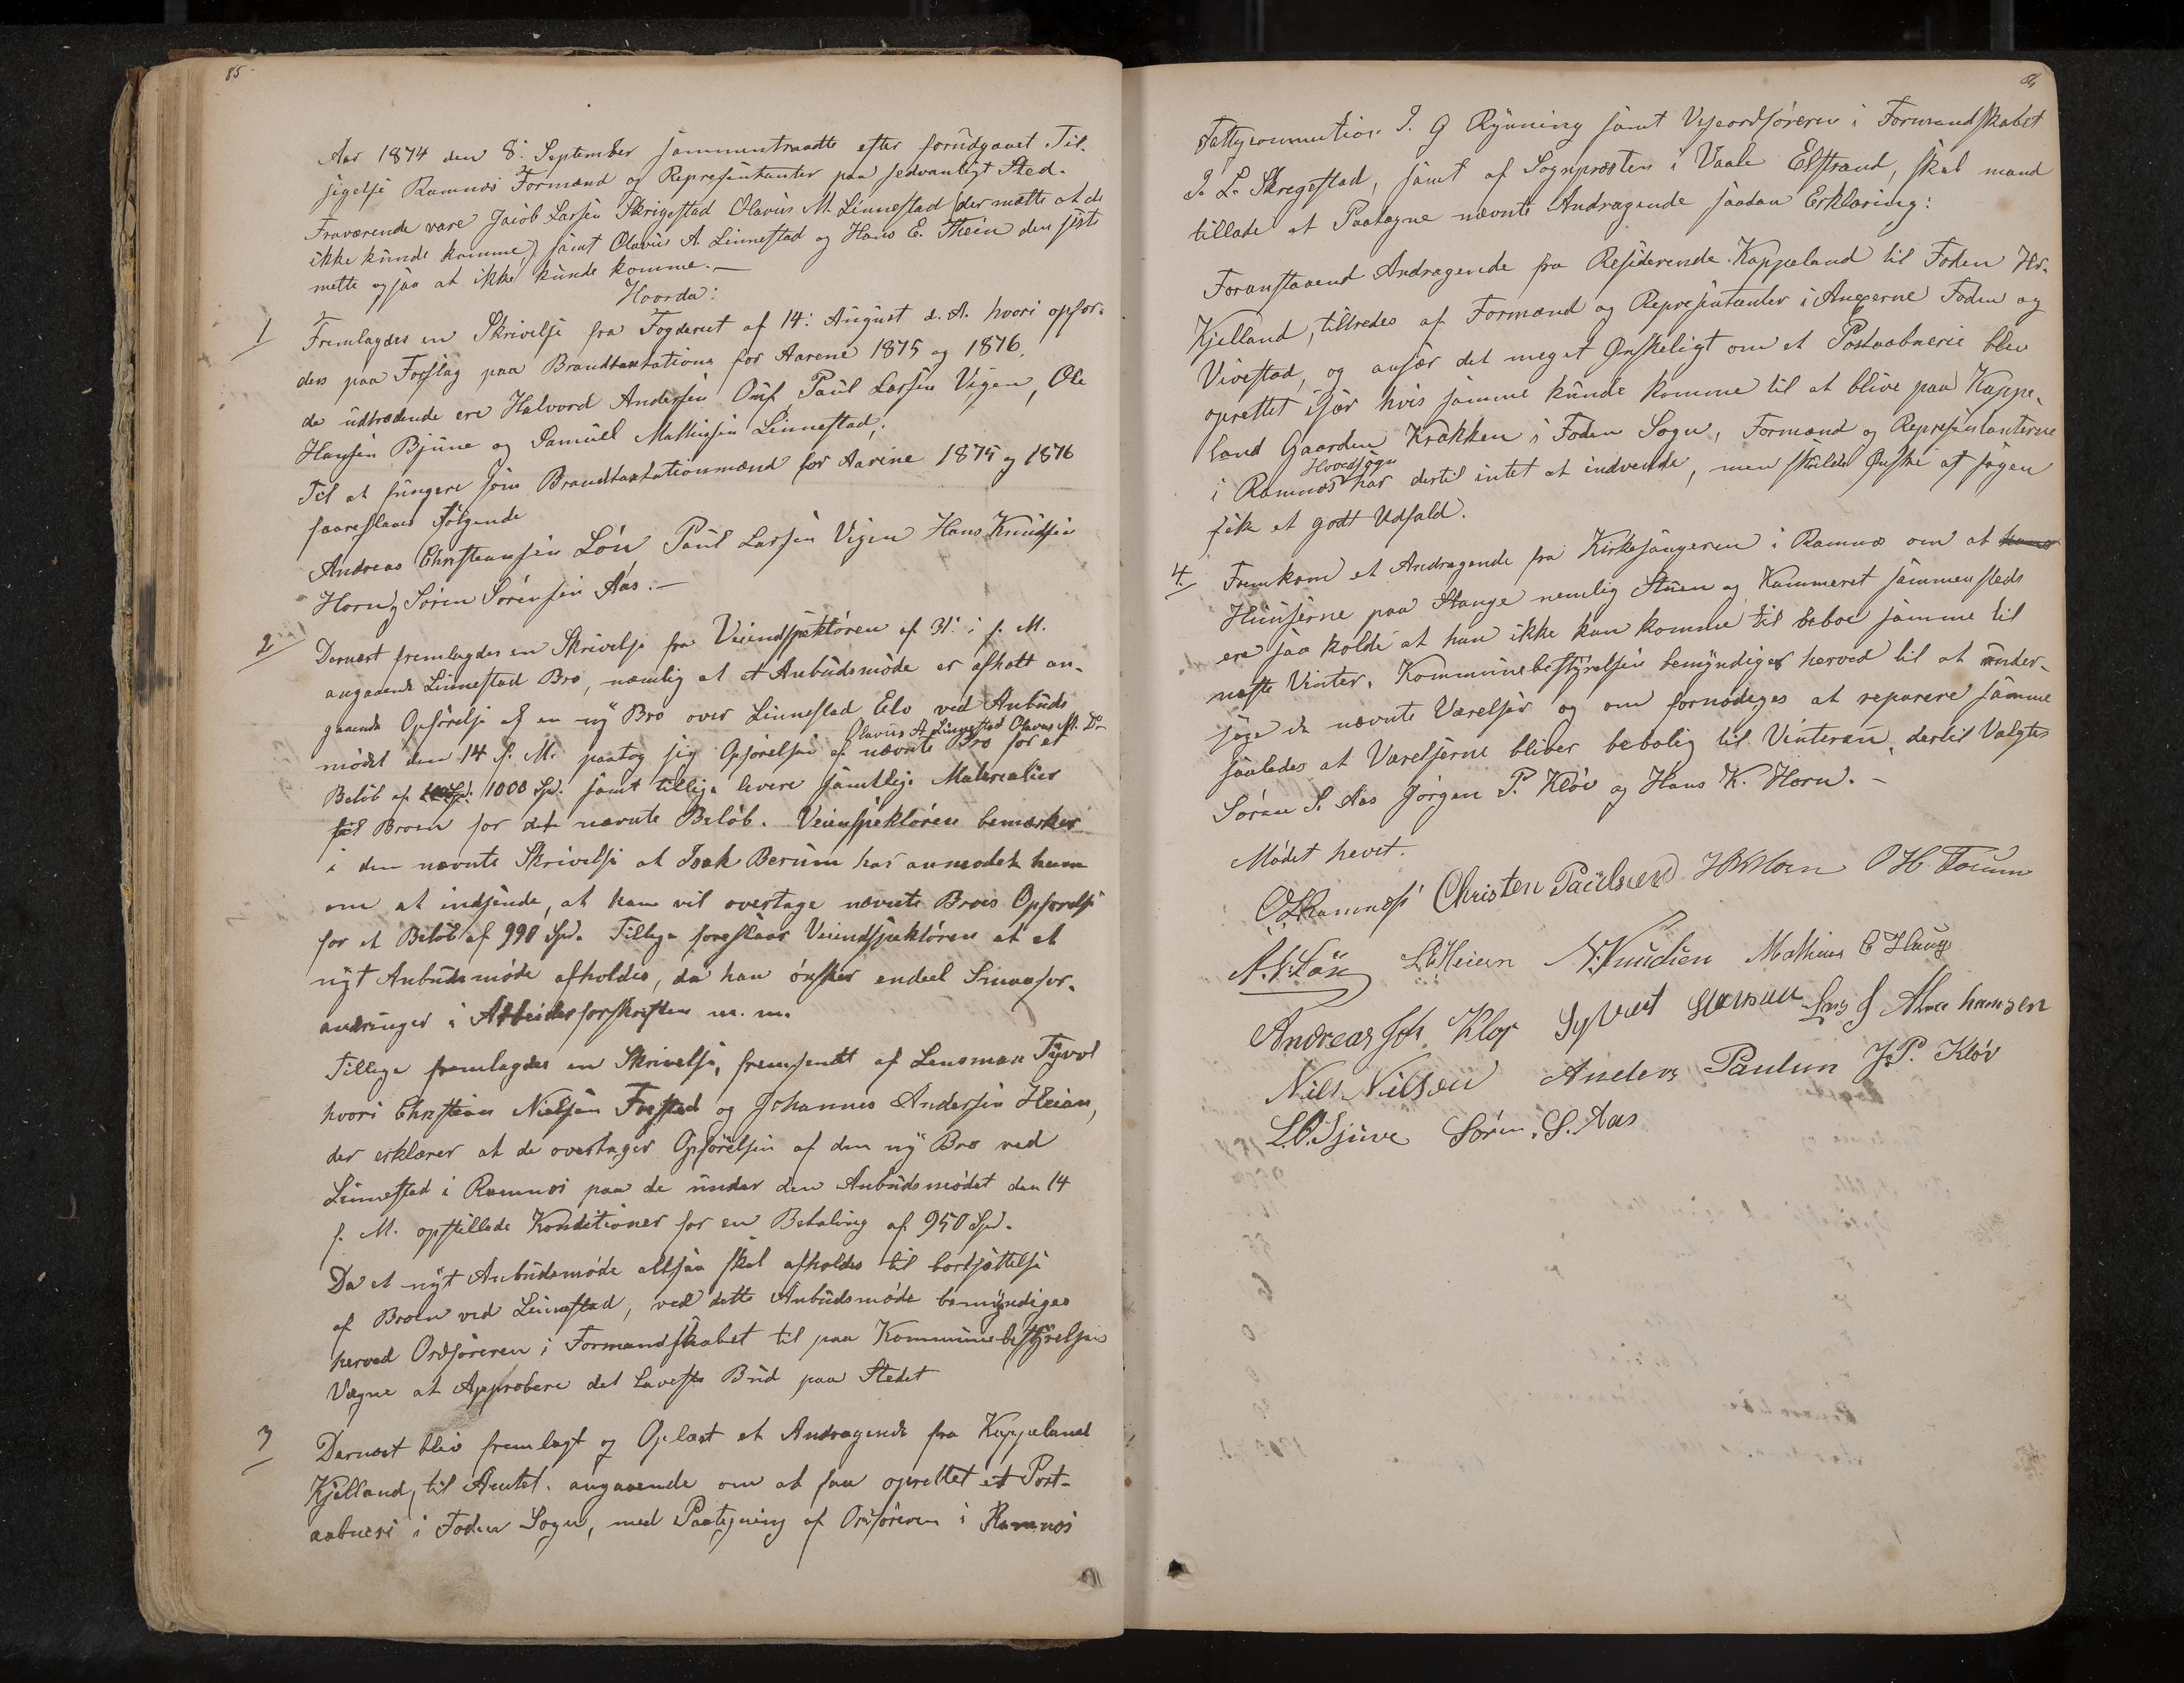 85
Aar 1874 den 8. September sammentraadte efter forudgaaet Til-
sigelse Ramnæs Formænd og Repræsentanter paa sedvanligt Sted.
Fraværende vare Jacob Larsen Skrigestad Olavus M. Linnestad (der mætte at de
ikke kunde komme) samt Olavus A. Linnestad og Hans E. den siste
mette ogsaa at ikke kunde komme.—
Hvorda:
1 Fremlagdes en Skrivelse fra Fogderiet af 14. August d. A. hvori opfor-
des paa Forslag paa Brandtaxtations for Aarene 1875 og 1876.
de udtrædende ere Halvord Andersen Paul Larsen Vigen, Ole
Hansen Bjune og Samuel Mathisen Linnestad;
Til at fungere som Brandtaxtationmænd for Aarene 1875 og 1876
foareslaaes følgende
Andreas Christiansen Lön Paul Larsen Vigen Hans Knudsen
Horn, Sören Sörensen Aas.—
2 Dernæst fremlagdes en Skrivelse fra Veiindspektören af 31. i f. M.
angaaende Linnestad Bro, næmlig at et Anbudsmöde er afholt an-
gaaende Opförelse af en ny Bro over Linnestad Elv ved Anbuds
Olavus A. Linnestad Olavus M. Do
mödet den 14 f. M. paatog sig Opförelsen af nævnte Bro for et
Belöb af 1000 Spd. samt tillige levere samtlige Matrealier
til Broen for det nævnte Belöb. Veiinspektören bemærker
i den nævnte Skrivelse at Isak Berum har anmodet ham
om at indsende, at han vil overtage nævnte Broes Opförelse
for et Belöb af 990 Spd. Tillige foreslaar Veiindspektören at et
nyt Anbudsmöde afholdes, da han önsker endeel Smaafor-
andringer i Arbeidsforskriften m. m.
Tillige fremlagdes en Skrivelse, fremsendt af Lensman
hvori Christian Nielsen Fossted og Johannes Andersen Heian,
der erklærer at de overtager Opförelsen af den ny Bro ved
Linnestad i Ramnæs paa de under den Anbudsmödet den 14
f. M. opstillede Konditioner for en Betaling af 950 Spd.
Da et nyt Anbudsmöde altsaa skal afholdes til bortsættelse
af Broen ved Linnestad, ved dette Anbudsmöde bemyndiges
herved Ordföreren i Formandskabet til paa Kommunebestyrelsens
Vegne at Approbere det Laveste Bud paa Stedet
3 Dernæst blev fremlagt og Oplæst et Andragende fra Kappeland
Kjelland, til Amtet. angaaende om at faa oprettet et Post-
aabneri i Foden Sogn, med Paategning af Ordföreren i Ramnæs
86
Fattigcommition I. G Rynning samt Viseordföreren i Formandskabet
J. L. Skregestad, samt af Sognpresten i Vaale Elstrand, skal mand
tillade at Paategne nævnte Andragende saadan Erklæring:
Foranstaaend Andragende fra Residerende Kappeland til Foden Hr.
Kjelland, tiltredes af Formænd og Repræsentanter i Anexerne Foden og
Vivestad, og ansær det meget Ønskeligt om et Postaabnerie blev
oprettet især hvis samme kunde komme til at blive paa Kappe-
land Gaarden Krakken i Foden Sogn, Formænd og Repræsentanterne
Hovedsogn
i Ramnæs har dertil intet at indvende, men skulde Ønske at sagen
fik et godt Udfald.
4. Fremkom et Andragende fra Kirkesangeren i Ramnæs om at
Huuserne paa Stange nemlig Stuen og Kammeret sammensteds
ere saa kolde at han ikke kan komme til beboe samme til
næste Vinter. Kommunebestyrelsen bemyndiges herved til at under-
söge de nævnte Værelser og om fornödeges at reparere samme
saaledes at Værelserne bliver bebolig til Vinteren, dertil Valgtes
Sören S. Aas Jörgen P. Klöv og Hans K. Horn.—
Mödet hevet.
O Ramnæs Christen Paulsen H K Horn O H Forum
A. C. Lön L Heian N. Knudsen Mathias E Haug
Andreas Joh. Klop Syvert Lars J Abrahamsen
Nils Nilsen Anders Paulsen J. P. Klöv
L. O. Sjuve Sören. S. Aas